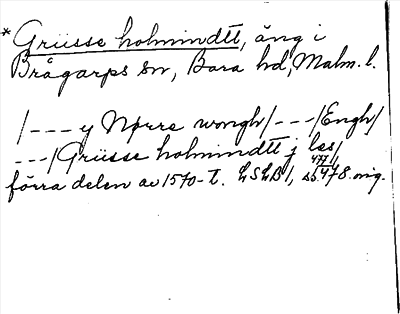 * Grüsse holmindtt, äng i
Brågarps sn, Bara hd, Malm. l.
/--- y Nørre wongh/---/Engh/
---/Grüsse holmindtt j les/
477/
förra delen av 1570-t. LSLB 1, s. 478. orig.